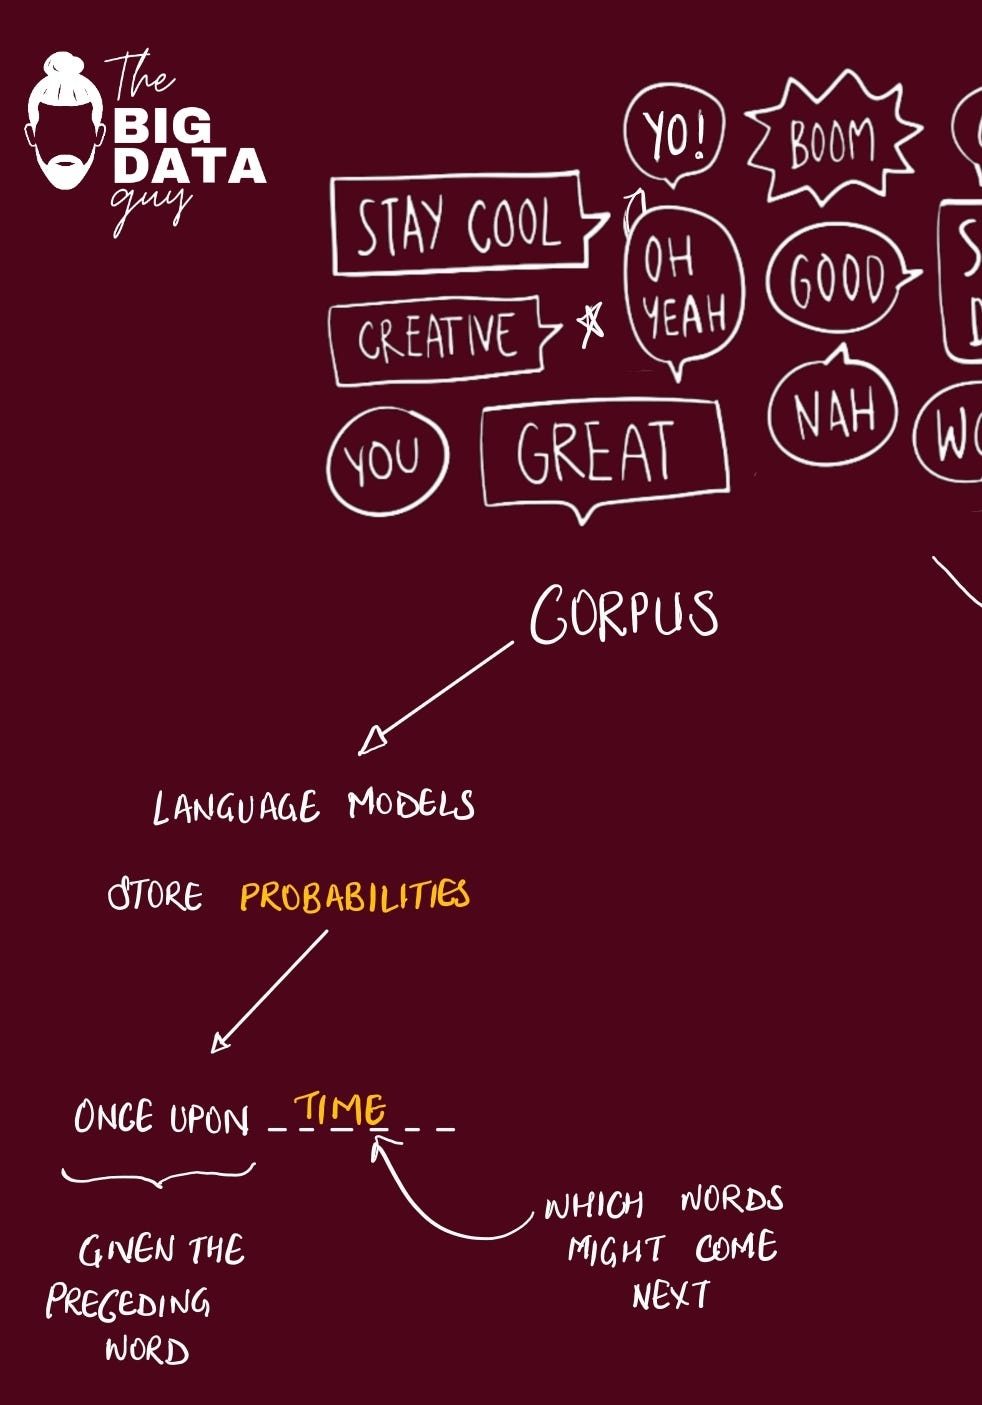 The
BIG
DATA
guy
YO!
BOOM
STAY COOL
OH
YEAH
GOOD
CREATIVE
NAH
YOU
GREAT
CORPUS
LANGUAGE MODELS
STORE PROBABILITIES
ONCE UPON _ _ TIME _ _
GIVEN THE
PRECEDING
WORD
WHICH WORDS
MIGHT COME
NEXT